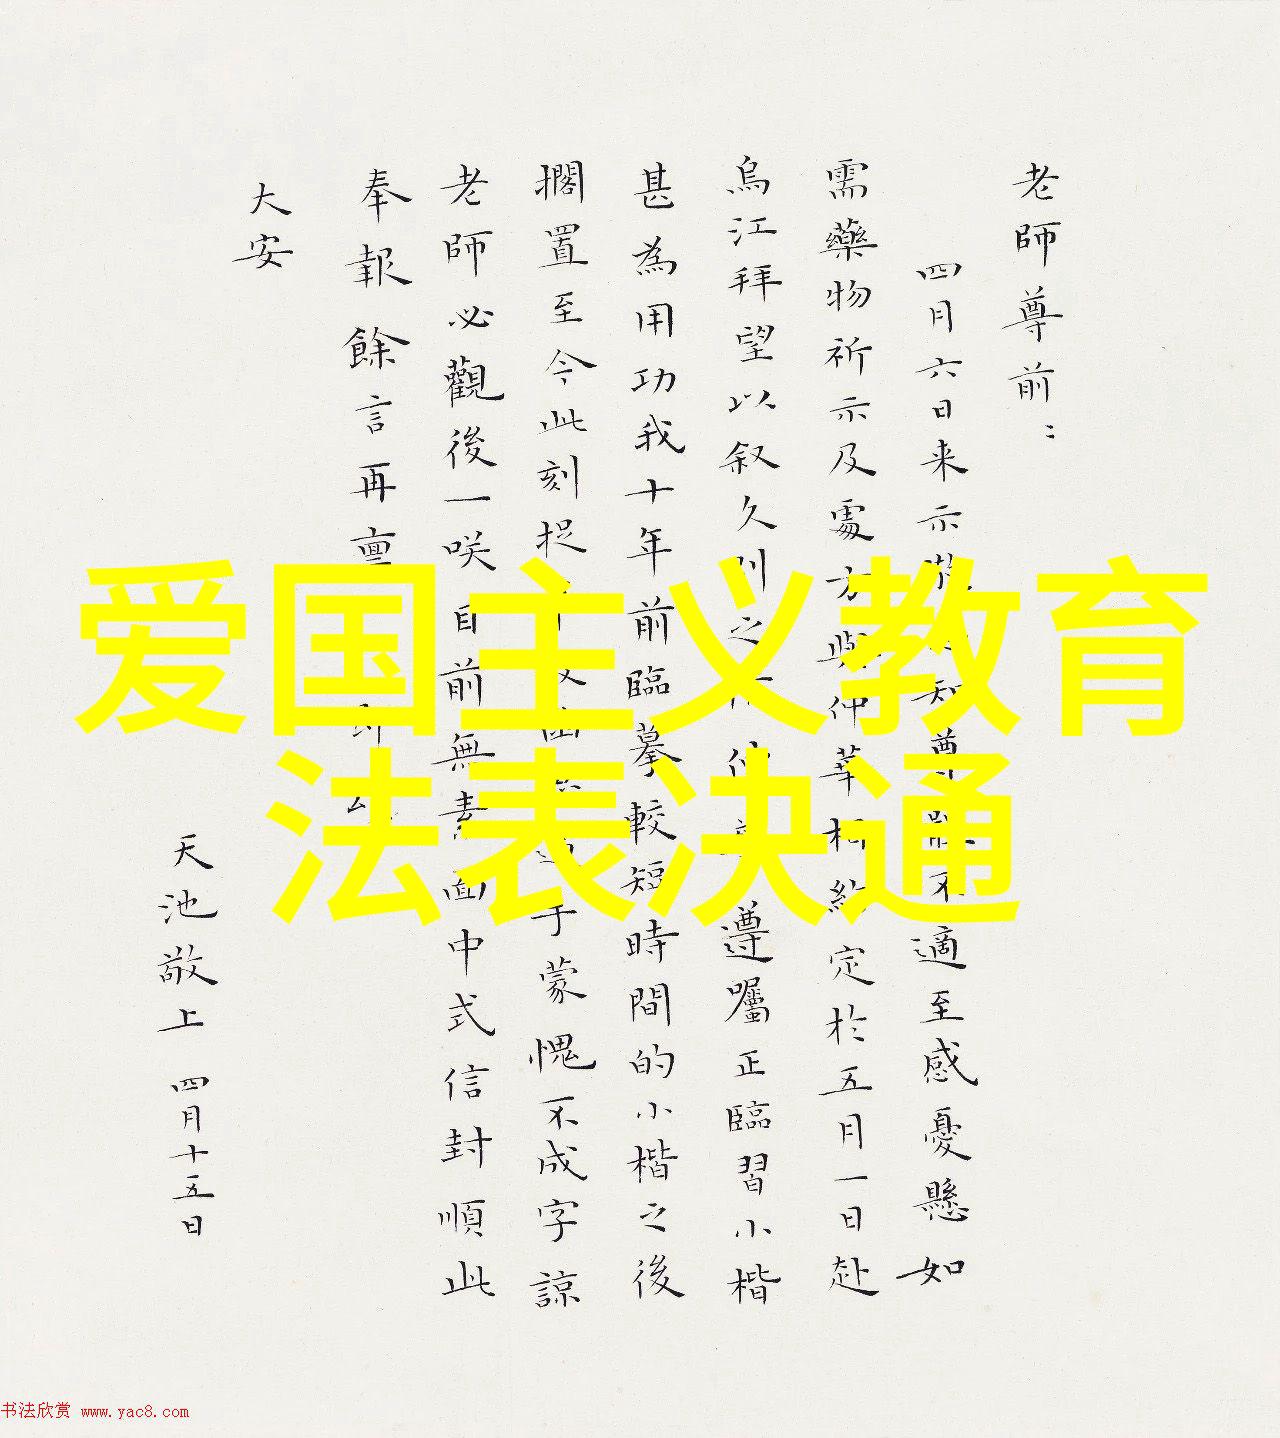 老師尊前：
四月六日来示
尊
不適至感憂懸如
需藥物祈示及處方與仲華相約定於五月一日赴
烏江拜望以叙久別之
遵囑正臨習小楷
甚為用功我十年前臨摹較短時間的小楷之後
擱置至今此刻捉
于蒙愧不成字諒
老師必觀後一咲目前無素面中式信封順此
奉報餘言再亶
大安
天池敬上 四月十五日
爱国主义教育
法表决通
书法欣赏 www.yac8.com